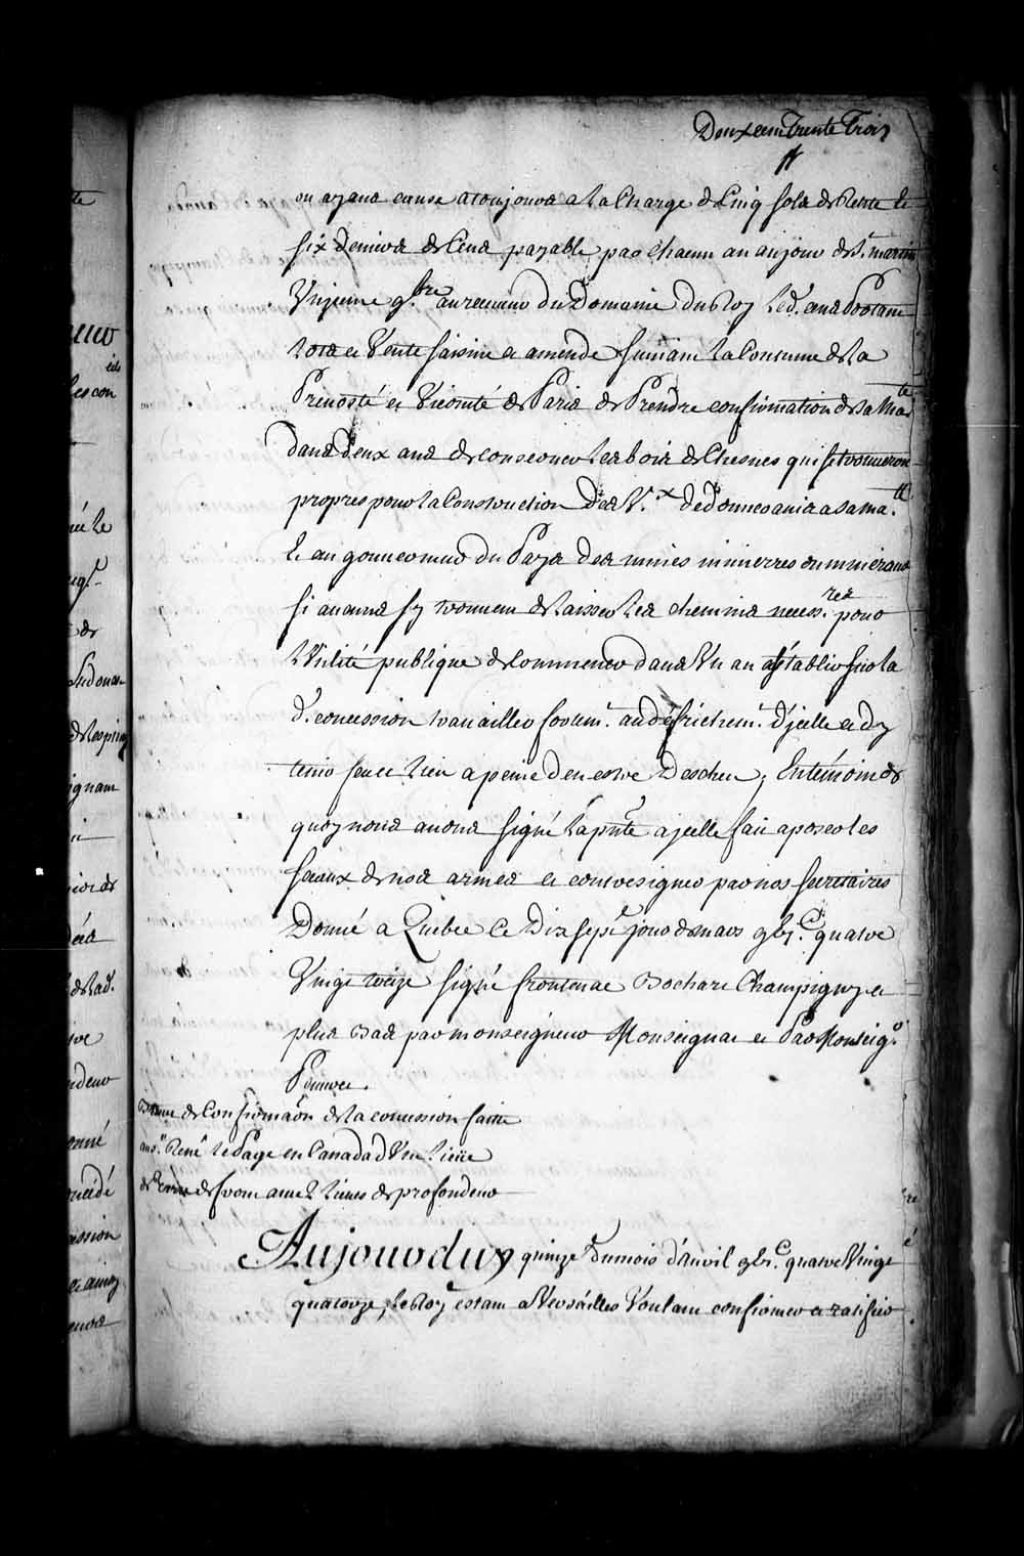 Deux cem Trente Trois
ou ayans cause a toujours a la Charge de Cinq sols de Rente et
six deniers de Cens payable par Chacun an au jour de St. martin
Unzieme 9.bre au receveur du Domaine du Roy lesd. cens Portant
lots et Vente saisine et amende suivant la Coutume de la
Prevosté et Vicomté de Paris de Prendre confirmation de sa Ma.té
dans deux ans de conserver les bois de Chesnes qui se trouveron
propres pour la Construction des V.x de donner avis a sa ma.té
Et au gouverneur du Pays des mines minierres ou mineraux
si aucuns sy trouvent de laisser les chemins necess.res pour
l'Utilité publique de Commencer dans Un an a s'établir sur la
d.e concession travailler fortem.t au defrichem.t d'jcelle et dy
tenir feu et lieu a peine d'en estre Descheu, En témoin de
quoy nous avons signé la p.nte a jcelle fait aposer les
sceaux de nos armes et contresigner par nos secretaires
Donné a Quebec le Dix sept.e jour de mars gbj.C quatre
Vingt treize signé frontenac Bochart Champigny et
plus Bas par monseigneur Monseignat et Par Monseig.r
Primont.
Brevet de Confirma[ti]on de la concession faitte
au s.r René le Page en Canada d'Une lieüe
de Terre de front avec 2 lieues de profondeur
Aujourduy quinze du mois d'Avril gbj.C quatre Vingt
quatorze, le Roy estant a Versailles Voulant confirmer et ratifier